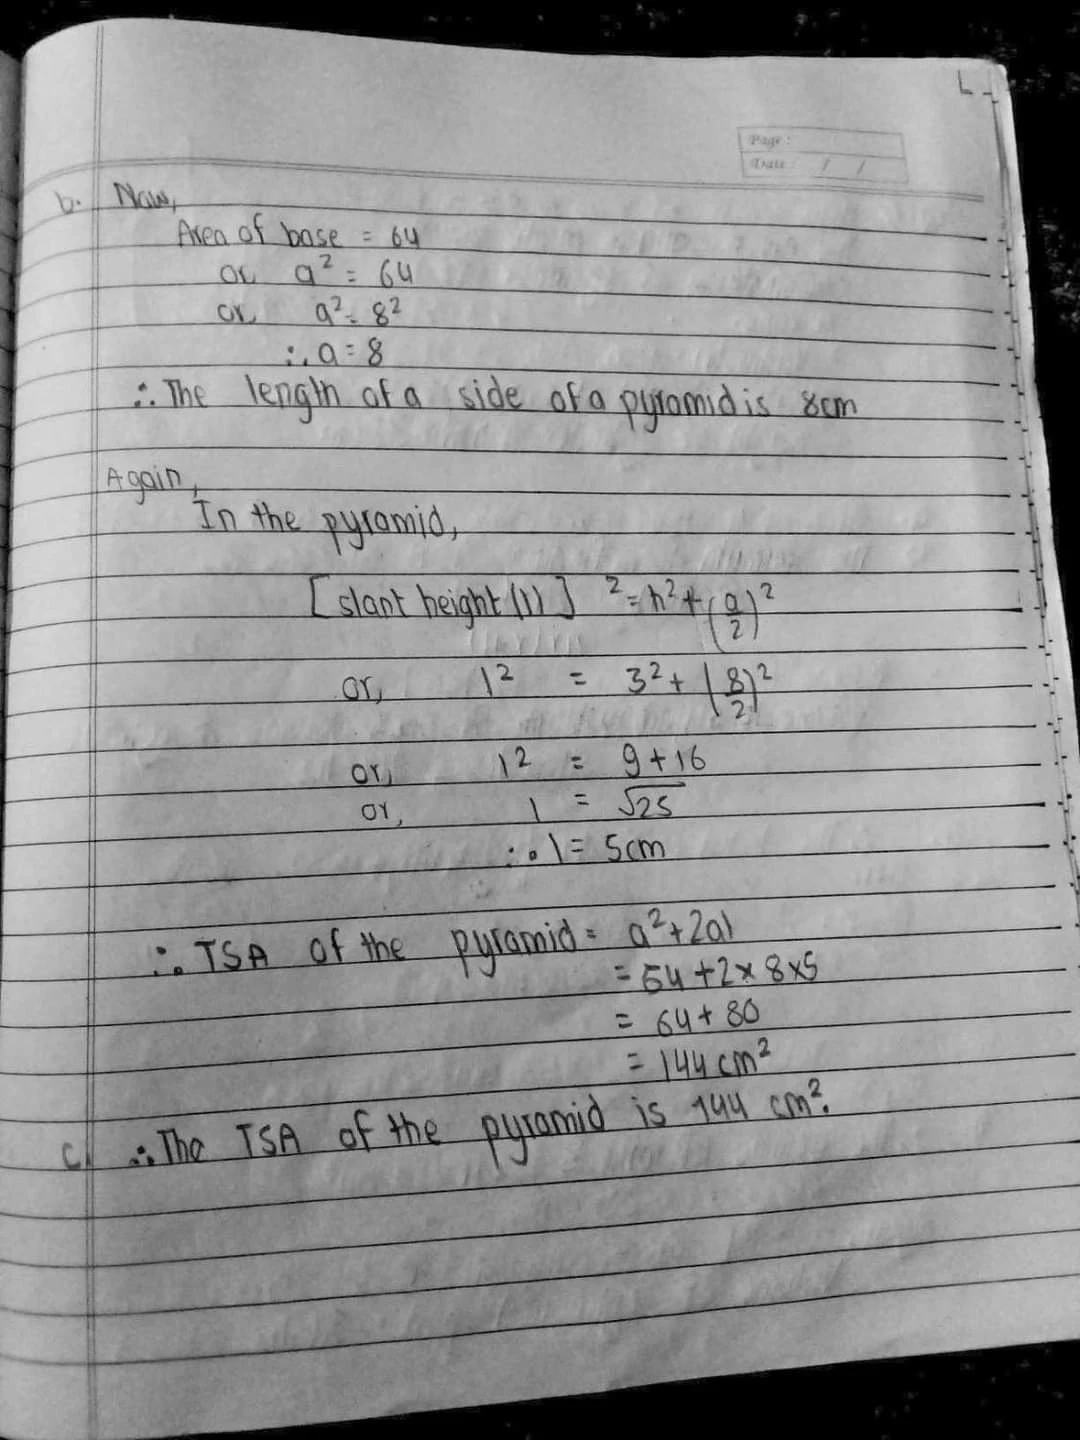 Page :
Date : / /
b. Now,
Area of base = 64
or a² = 64
or, a² = 8²
∴ a = 8
∴ The length of a side of a pyramid is 8cm
Again,
In the pyramid,
[slant height (l)]² = h² + (a/2)²
or, l² = 3² + (8/2)²
or, l² = 9 + 16
or, l = √25
∴ l = 5cm
∴ TSA of the pyramid = a² + 2al
= 64 + 2 × 8 × 5
= 64 + 80
= 144 cm²
c. ∴ The TSA of the pyramid is 144 cm².